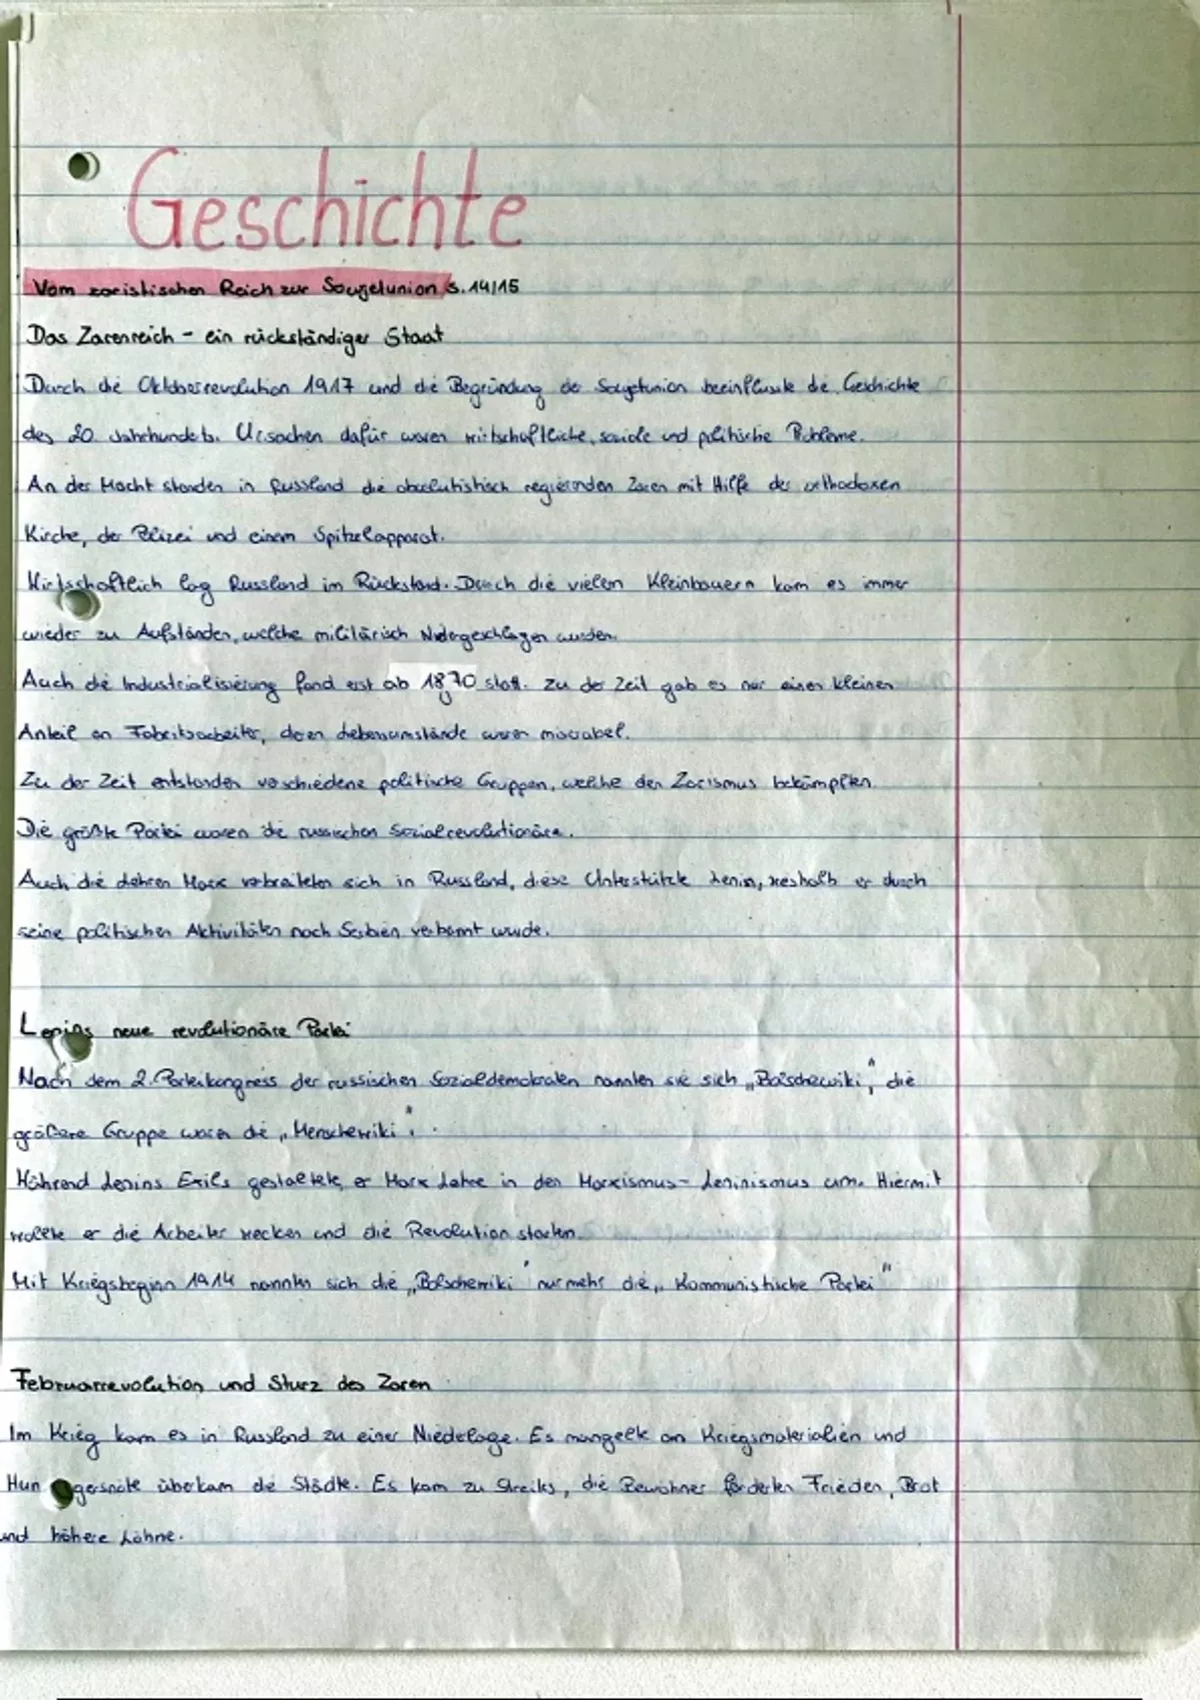 Geschichte
Vom zaristischen Reich zur Sowjetunion S. 14/15
Das Zarenreich - ein rückständiger Staat
Durch die Oktoberrevolution 1917 und die Begründung der Sowjetunion beeinflusste die Geschichte
des 20. Jahrhunderts. Ursachen dafür waren wirtschaftliche, soziale und politische Probleme.
An der Macht standen in Russland die absolutistisch regierenden Zaren mit Hilfe der orthodoxen
Kirche, der Polizei und einem Spitzelapparat.
Wirtschaftlich lag Russland im Rückstand. Durch die vielen Kleinbauern kam es immer
wieder zu Aufständen, welche militärisch Niedergeschlagen wurden.
Auch die Industrialisierung fand erst ab 1870 statt. Zu der Zeit gab es nur einen kleinen
Anteil an Fabriksarbeiter, deren Lebensumstände waren miserabel.
Zu der Zeit entstanden verschiedene politische Gruppen, welche den Zarismus bekämpften.
Die größte Partei waren die russischen Sozialrevolutionäre.
Auch die Lehren Marx verbreiteten sich in Russland, diese Unterstützte Lenin, weshalb er durch
seine politischen Aktivitäten nach Serbien verbannt wurde.
Lenins neue revolutionäre Partei
Nach dem 2. Parteikongress der russischen Sozialdemokraten nannten sie sich „Bolschewiki", die
größere Gruppe waren die „Menschewiki".
Während Lenins Exils gestaltete er Marx Lehre in den Marxismus-Leninismus um. Hiermit
wollte er die Arbeiter wecken und die Revolution starten.
Mit Kriegsbeginn 1914 nannten sich die „Bolschewiki" nur mehr die „Kommunistische Partei"
Februarrevolution und Sturz des Zaren
Im Krieg kam es in Russland zu einer Niederlage. Es mangelte an Kriegsmaterialien und
Hungersnöte überkam die Städte. Es kam zu Streiks, die Bewohner forderten Frieden, Brot
und höhere Löhne.